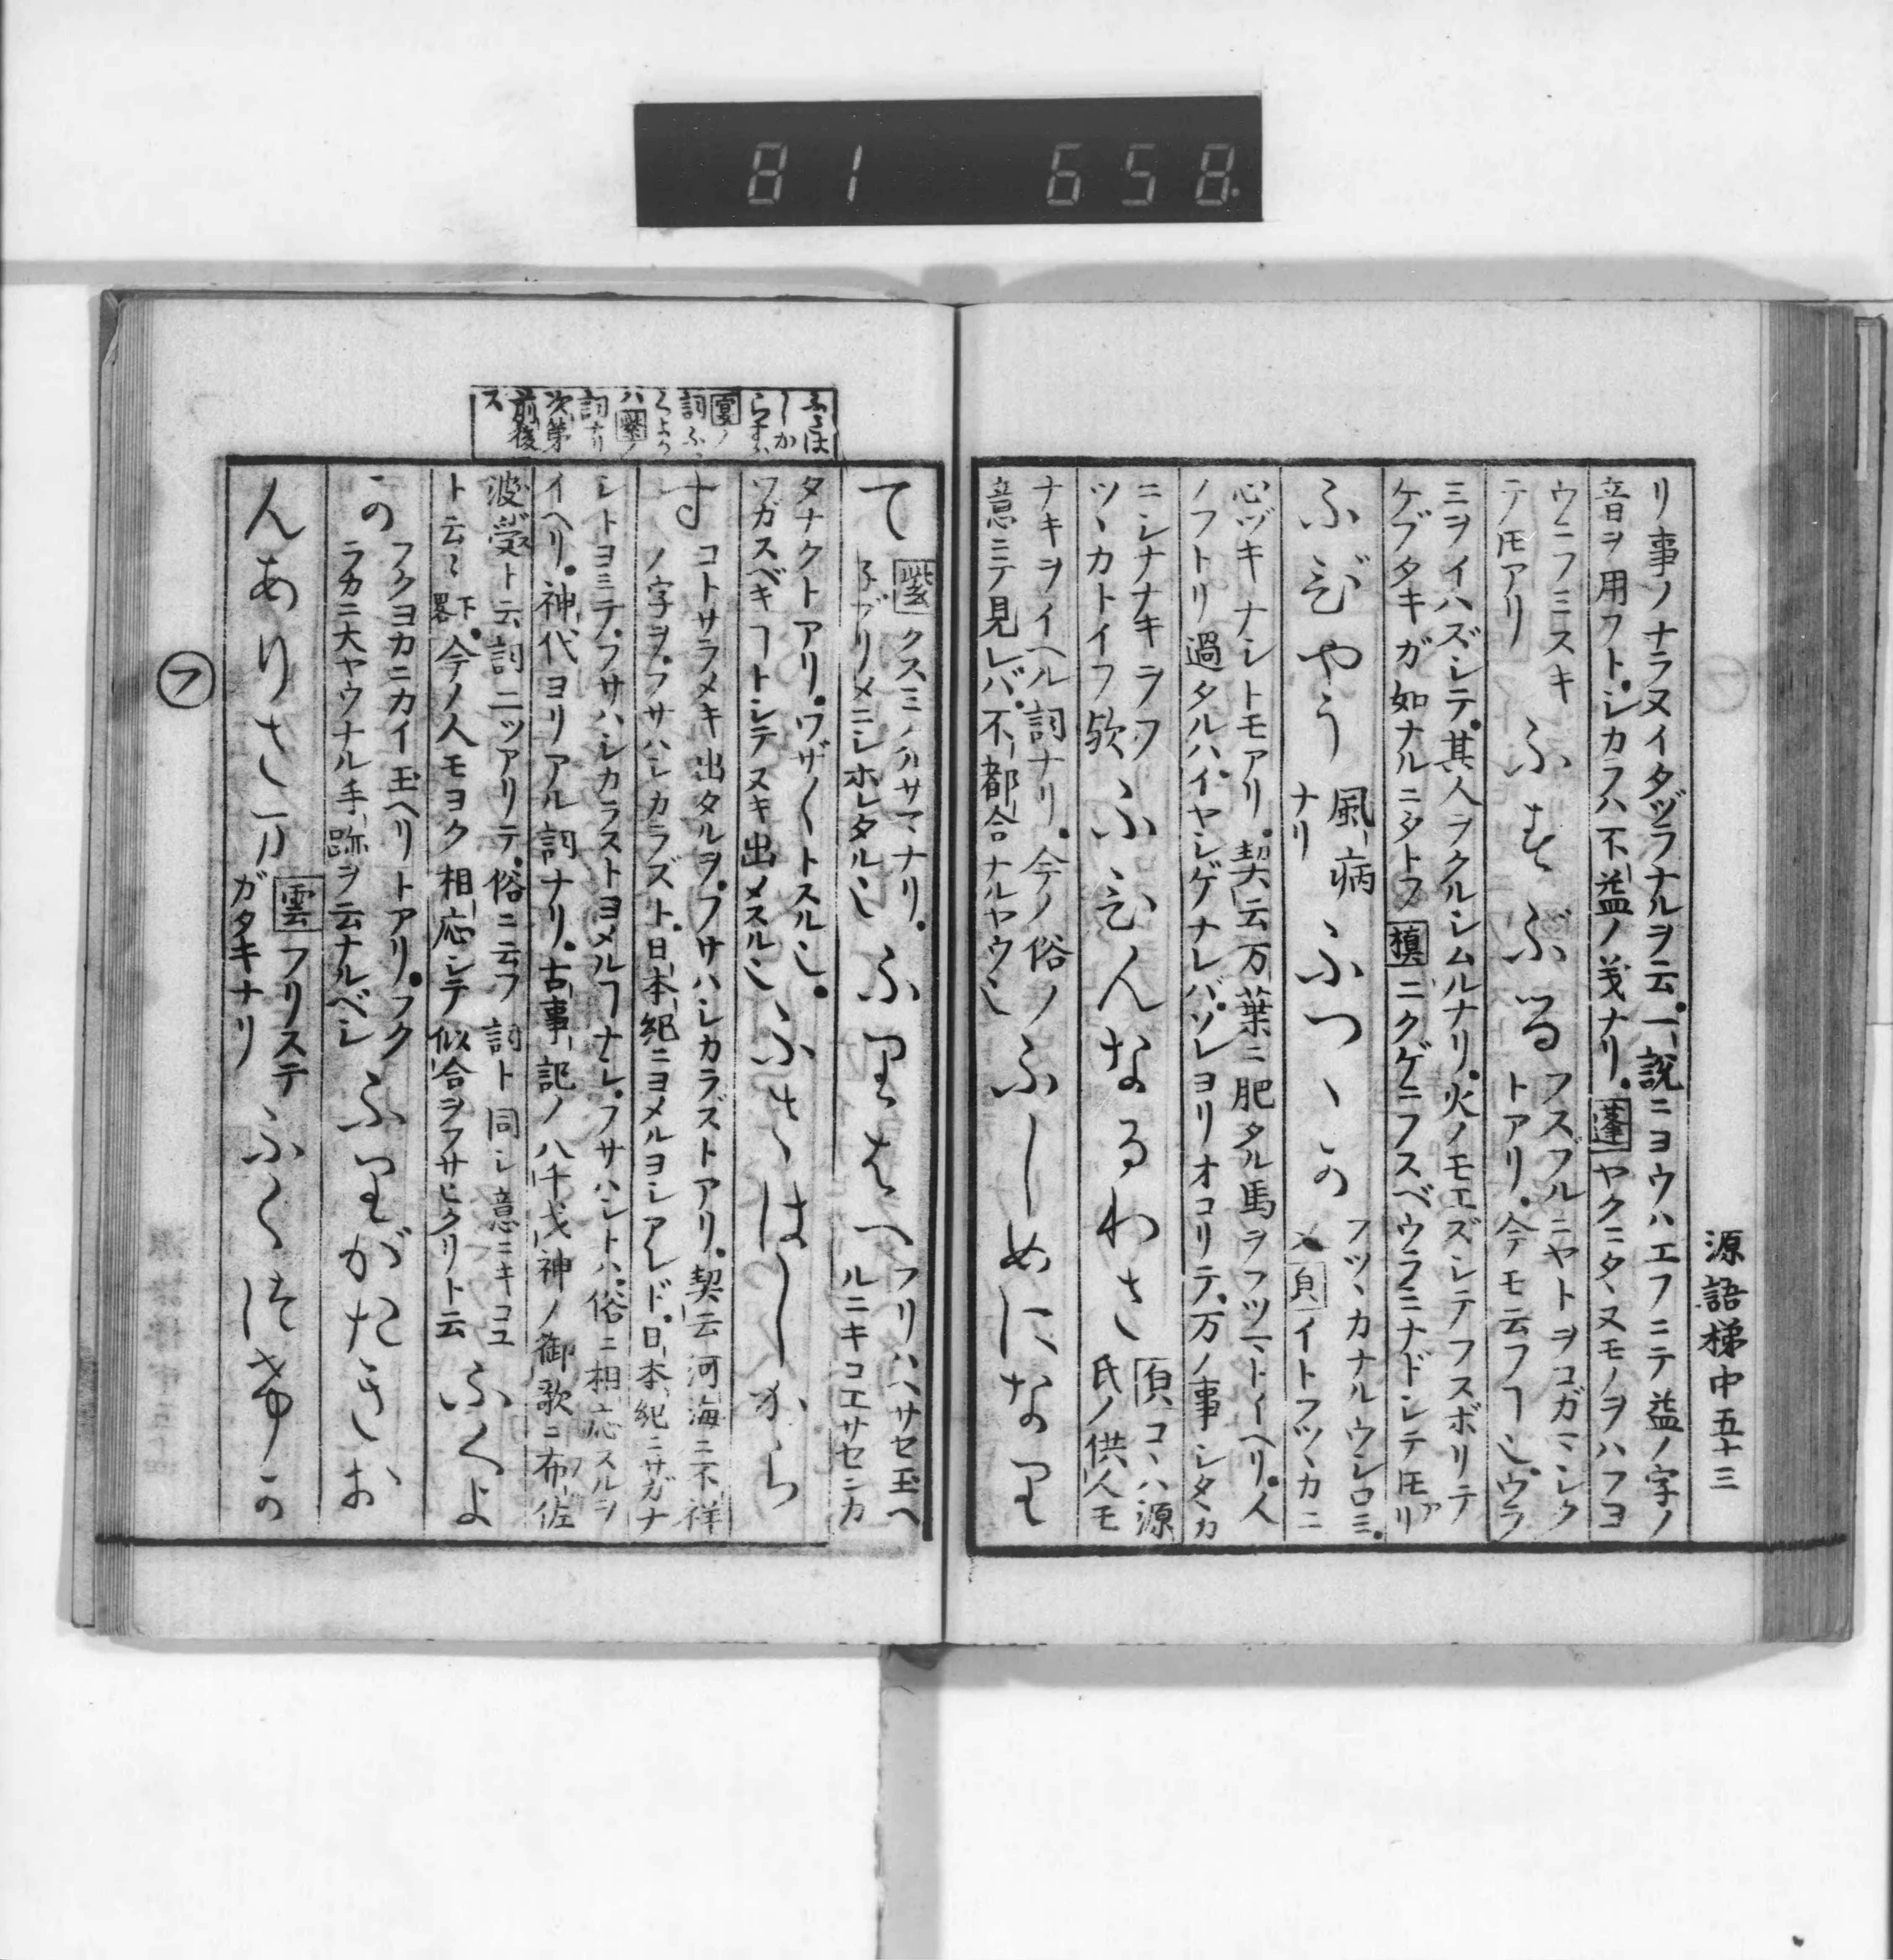 81 658
源語梯中五十三
リ事ノナラヌイタヅラナルヲ云。一説ニヨウハエフニテ益ノ字ノ
音ヲ用フト。シカラハ不益ノ義ナリ。蓬ヤクニタヽヌモノヲハフヨ
ウニフミスキ
テ𪜈アリ
ふすぶる
フスブルニヤトヲコガマシク
トアリ。今モ云フヿ也。ウラ
ミヲイハズシテ。其人ヲクルシムルナリ。火ノモエズシテフスボリテ
ケブタキガ如ナルニタトフ 槙ニクゲニフスベウラミナドシテ𪜈アリ
ふびやう
風病
ナリ
ふつゝか
フツヽカナルウシロミ。
メ 貞イトフツヽカニ
心ヅキナシトモアリ。契云万葉ニ肥タル馬ヲフツマトイヘリ。人
ノフトリ過タルハ。イヤシゲナレバ。ソレヨリオコリテ。万ノ事シタヽカ
ニシナナキヲフ
ツヽカトイフ欤
ふびんなるわさ
須コヽハ源
氏ノ供人モ
ナキヲイヘル詞ナリ。今ノ俗ノ
意ミテ見レバ。不都合ナルヤウ也
ふしめになり
て
紫クスミノハサマナリ。
子ブリメニシホレタル也
ふりはへ
フリハヘサセ玉ヘ
ルニキコエサセニカ
タナクトアリ。ワザ〳〵トスル也。
ワガスベキヿトシテヌキ出メスル也
ふさはしから
す
コトサラメキ出タルヲ。フサハシカラズトアリ。契云河海ニ不祥
ノ字ヲ。フサハシカラズト。日本紀ニヨメルヨシアレド。日本紀ニサガナ
シトヨミテ。フサハシカラストヨメルヿナシ。フサハシトハ俗ニ相応スルヲ
イヘリ。神代ヨリアル詞ナリ。古事記ノ八千戈神ノ御歌ニ布佐
波受ト云詞二ツアリテ。俗ニ云フ詞ト同シ意ニキコユ
ト云〻下畧。今ノ人モヨク相応シテ似合ヲフサヒクリト云
ふくよ
か
フクヨカニカイ玉ヘリトアリ。フク
ラカニ大ヤウナル手跡ヲ云ナルベシ
ふりがたきお
んありさま
雲フリステ
ガタキナリ
ふくつけか
ふさは
しか
らすハ
ノ
詞ふ
くよか
ハ紫ノ
詞ナリ
次第
前後
ス
フ